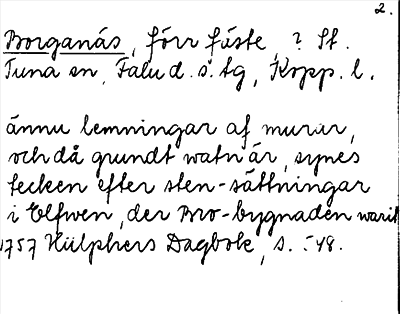 2.
Borganäs, förr fäste, ? St.
Tuna sn, Falu d. s. tg, Kopp. l.
ännu lemningar af murar,
och då grundt watn är, synes
tecken efter sten-sättningar
i Elfwen, der Bro-bygnaden warit
1757 Hülphers Dagbok, s. 48.